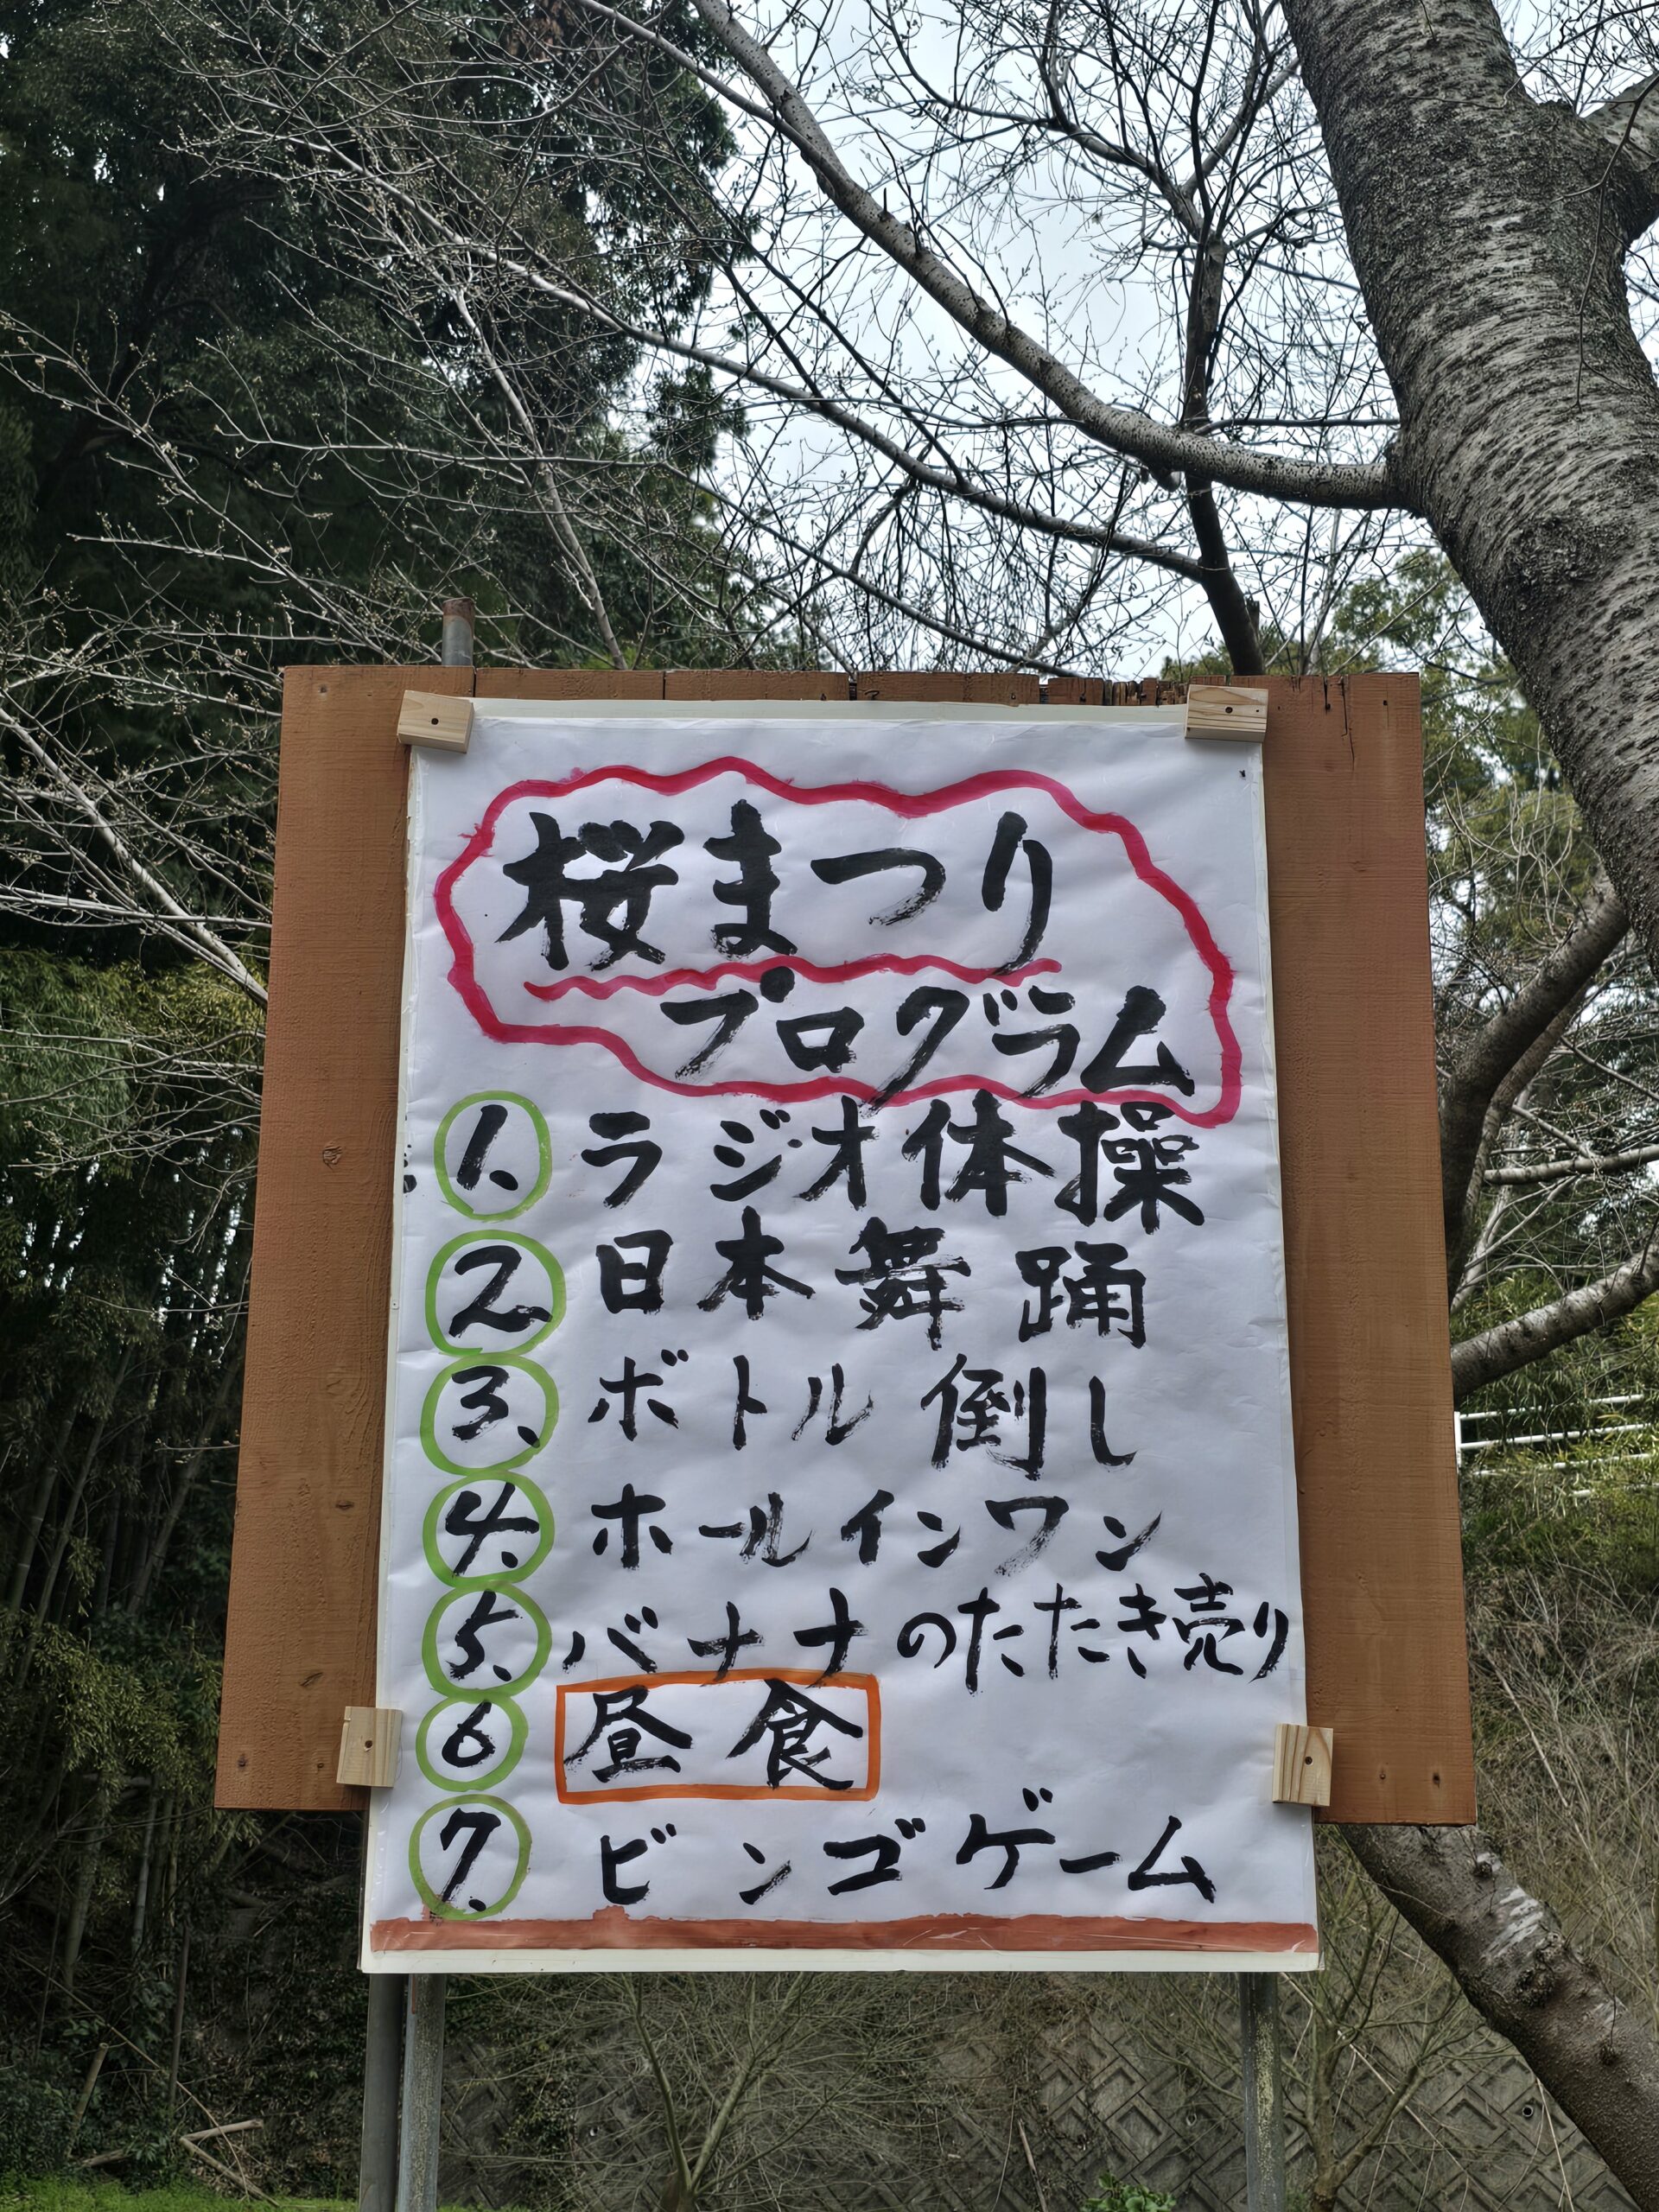 桜まつり
プログラム
1. ラジオ体操
2 日本舞踊
3、 ボトル倒し
4. ホールインワン
5、 バナナのたたき売り
6 昼食
7. ビンゴゲーム